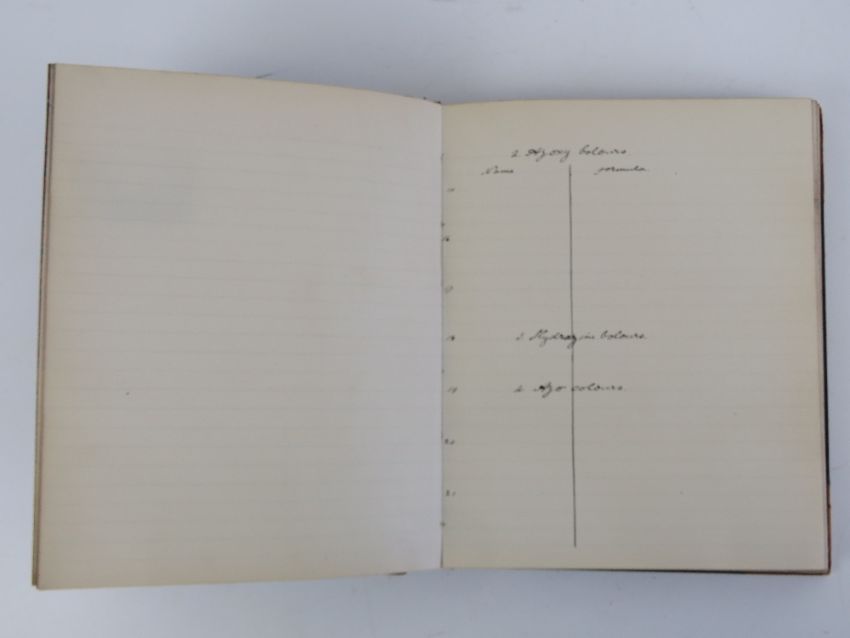 2. Azoxy Colours
Name Formula.
3. Hydrazine Colours.
4. Azo colours.
18
19
20
21